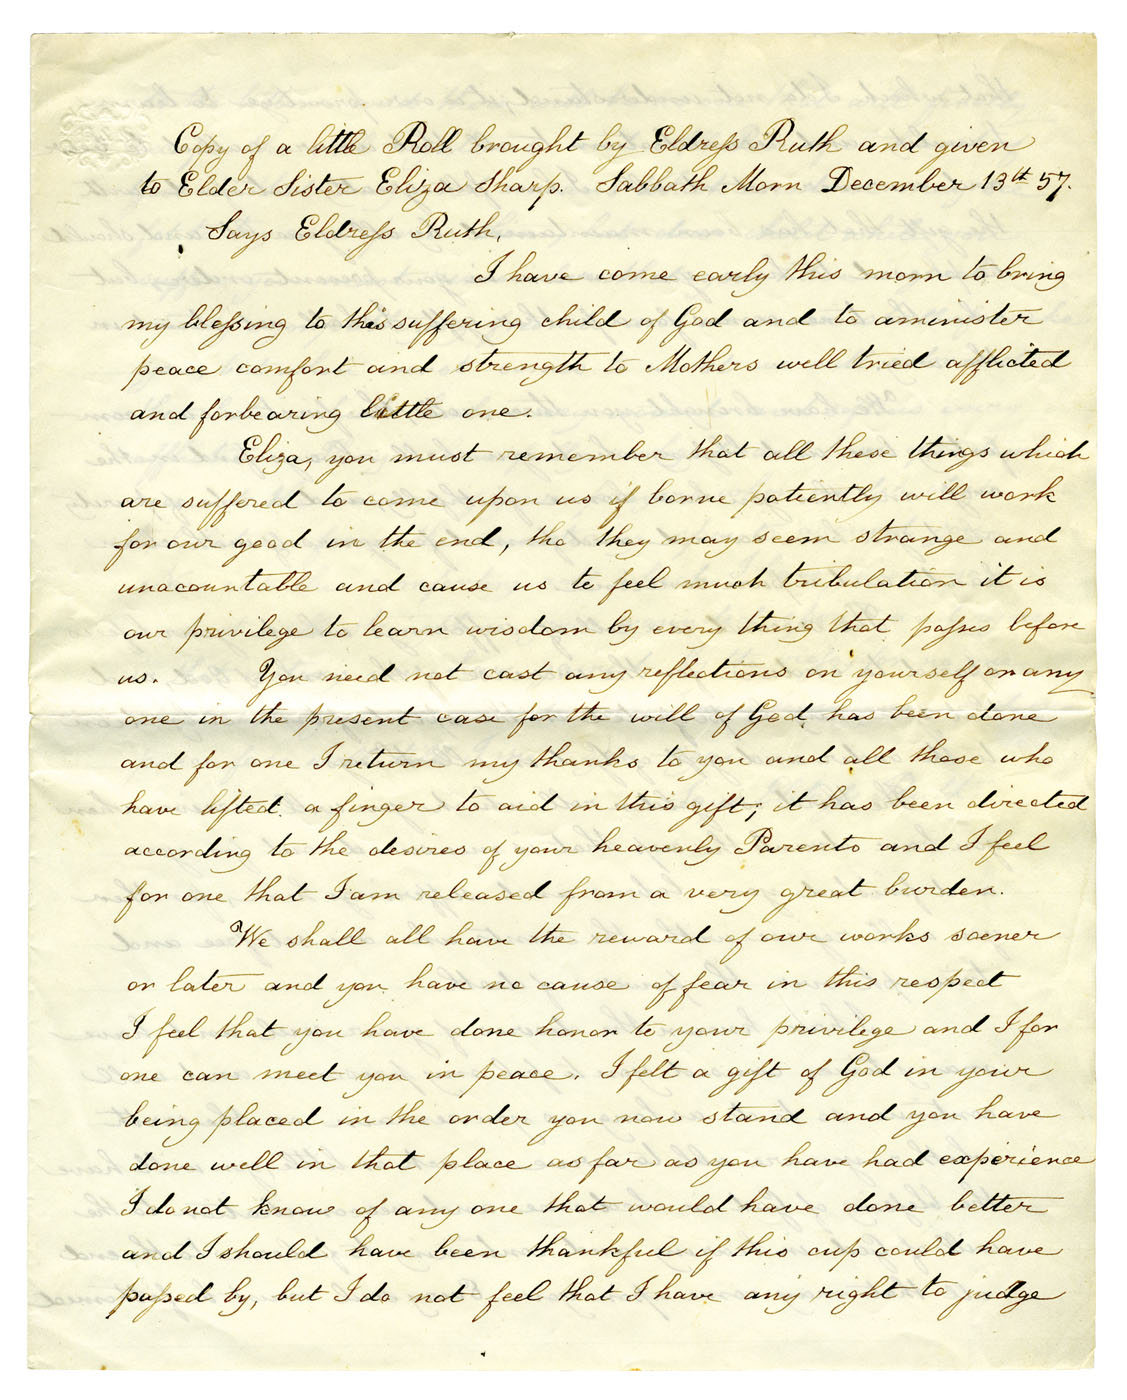 Copy of a little Roll brought by Eldress Ruth and given
to Elder Sister Eliza Sharp. Sabbath Morn December 13th 57.
Says Eldress Ruth,
I have come early this morn to bring
my blessing to this suffering child of God and to aminister
peace comfort and strength to Mothers well tried afflicted
and forbearing little one.
Eliza, you must remember that all these things which
are suffered to come upon us if borne patiently will work
for our good in the end, tho they may seem strange and
unacountable and cause us to feel much tribulation it is
our privilege to learn wisdom by every thing that passes before
us. You need not cast any reflections on yourself or any
one in the present case for the will of God has been done
and for one I return my thanks to you and all those who
have lifted a finger to aid in this gift; it has been directed
according to the desires of your heavenly Parents and I feel
for one that I am released from a very great burden.
We shall all have the reward of our works sooner
or later and you have no cause of fear in this respect
I feel that you have done honor to your privilege and I for
one can meet you in peace. I felt a gift of God in your
being placed in the order you now stand and you have
done well in that place as far as you have had experience
I do not know of any one that would have done better
and I should have been thankful if this cup could have
passed by, but I do not feel that I have any right to judge